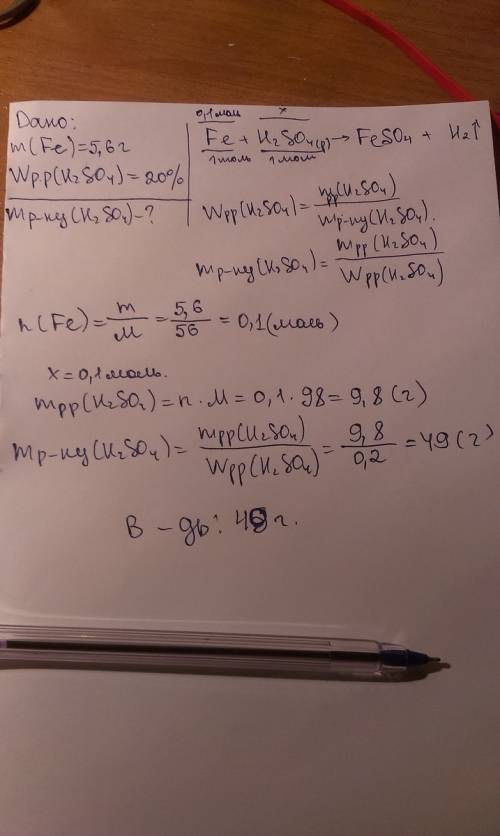 Дано:
m(Fe)=5,6г
Wр.р(H₂SO₄)=20%
mр-ну(H₂SO₄)-?
0,1моль x
Fe + H₂SO₄(р)→ FeSO₄ + H₂↑
1моль 1моль
Wрр(H₂SO₄)= mрр(H₂SO₄) / mр-ну(H₂SO₄).
mр-ну(H₂SO₄)= mрр(H₂SO₄) / Wрр(H₂SO₄)
n(Fe)= m/M = 5,6/56 = 0,1(моль)
x=0,1моль.
mрр(H₂SO₄)=n·M=0,1·98=9,8(г)
mр-ну(H₂SO₄)= mрр(H₂SO₄) / Wрр(H₂SO₄) = 9,8/0,2 =49(г)
В-дь: 49г.